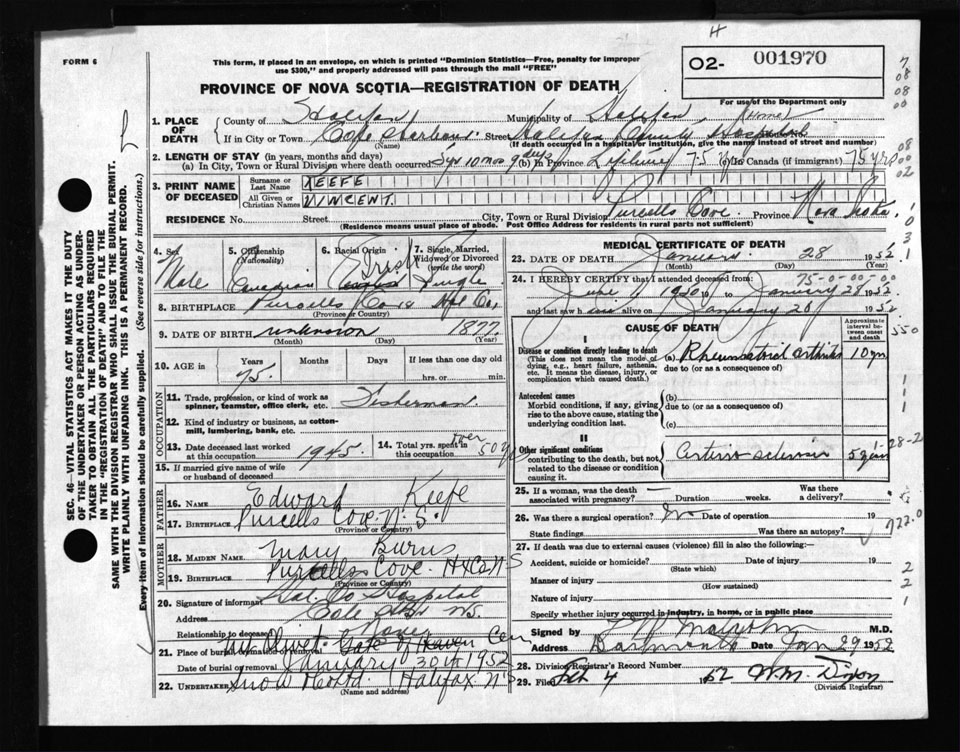 H
FORM 6
This form, if placed in an envelope, on which is printed "Dominion Statistics—Free, penalty for improper
use $300," and properly addressed will pass through the mail "FREE"
O2- 001970
PROVINCE OF NOVA SCOTIA—REGISTRATION OF DEATH
For use of the Department only
1. PLACE OF DEATH County of Halifax Municipality of Halifax (Home)
If in City or Town Cole Harbour Street Halifax County Hospital
(Name) (If death occurred in a hospital or institution, give the name instead of street and number)
2. LENGTH OF STAY (in years, months and days)
(a) In City, Town or Rural Division where death occurred 5 yrs 10 mos 9 days (b) In Province Lifetime 75 (c) In Canada (if immigrant) 75 yrs
3. PRINT NAME OF DECEASED Surname or Last Name KEEFE
All Given or Christian Names VINCENT.
RESIDENCE No. Street City, Town or Rural Division Purcells Cove. Province Nova Scotia.
(Residence means usual place of abode. Post Office Address for residents in rural parts not sufficient)
4. Sex Male
5. Citizenship (Nationality) Canadian
6. Racial Origin Irish
7. Single, Married, Widowed or Divorced (write the word) Single
8. BIRTHPLACE Purcells Cove Hfx Co,
(Province or Country)
9. DATE OF BIRTH unknown 1877
(Month) (Day) (Year)
10. AGE in Years 75. Months Days If less than one day old
hrs. or min.
OCCUPATION
11. Trade, profession, or kind of work as spinner, teamster, office clerk, etc. Fisherman.
12. Kind of industry or business, as cotton-mill, lumbering, bank, etc.
13. Date deceased last worked at this occupation 1945.
14. Total yrs. spent in this occupation over 50 yrs
15. If married give name of wife or husband of deceased
FATHER
16. NAME Edward Keefe
17. BIRTHPLACE Purcells Cove N.S.
(Province or Country)
MOTHER
18. MAIDEN NAME Mary Burns
19. BIRTHPLACE Purcells Cove. HxCo N-S
(Province or Country)
20. Signature of informant Hal. Co Hospital
Address Cole Hbr NS.
Relationship to deceased None
21. Place of burial or removal Mt Olivet Gate of Heaven Cem
Date of burial or removal January 30th 1952
22. UNDERTAKER Snow Halifax N-S
(Name and address)
MEDICAL CERTIFICATE OF DEATH
23. DATE OF DEATH January 28 1952
(Month) (Day) (Year)
24. I HEREBY CERTIFY that I attended deceased from: 75-0-00-00
June 1950 to January 28 1952
and last saw h im alive on January 20 1952
CAUSE OF DEATH
Approximate interval between onset and death
I
Disease or condition directly leading to death (a) Rheumatoid arthritis 10 yrs
(This does not mean the mode of dying, e.g., heart failure, asthenia, etc. It means the disease, injury, or complication which caused death.)
due to (or as a consequence of)
Antecedent causes (b)
Morbid conditions, if any, giving rise to the above cause, stating the underlying condition last.
due to (or as a consequence of)
(c)
II
Other significant conditions Arterio sclerosis 5 years
contributing to the death, but not related to the disease or condition causing it.
25. If a woman, was the death associated with pregnancy? — Duration weeks. Was there a delivery?
26. Was there a surgical operation? No Date of operation 19
State findings Was there an autopsy?
27. If death was due to external causes (violence) fill in also the following:—
Accident, suicide or homicide? Date of injury 19
(State which)
Manner of injury
(How sustained)
Nature of injury
Specify whether injury occurred in industry, in home, or in public place
Signed by M.D.
Address Dartmouth Date Jan 29 1952
28. Division Registrar's Record Number
29. Filed Feb 4 1952 W.M. Dixon
(Division Registrar)
SEC. 46—VITAL STATISTICS ACT MAKES IT THE DUTY
OF THE UNDERTAKER OR PERSON ACTING AS UNDER-
TAKER TO OBTAIN ALL THE PARTICULARS REQUIRED
IN THE "REGISTRATION OF DEATH" AND TO FILE THE
SAME WITH THE DIVISION REGISTRAR WHO SHALL ISSUE THE BURIAL PERMIT.
WRITE PLAINLY WITH UNFADING INK. THIS IS A PERMANENT RECORD.
Every item of information should be carefully supplied. (See reverse side for instructions.)
7
08
08
00
08
00
02
1
0
3
1
550
1
1
1
1-28-2
722.0
2
2
1